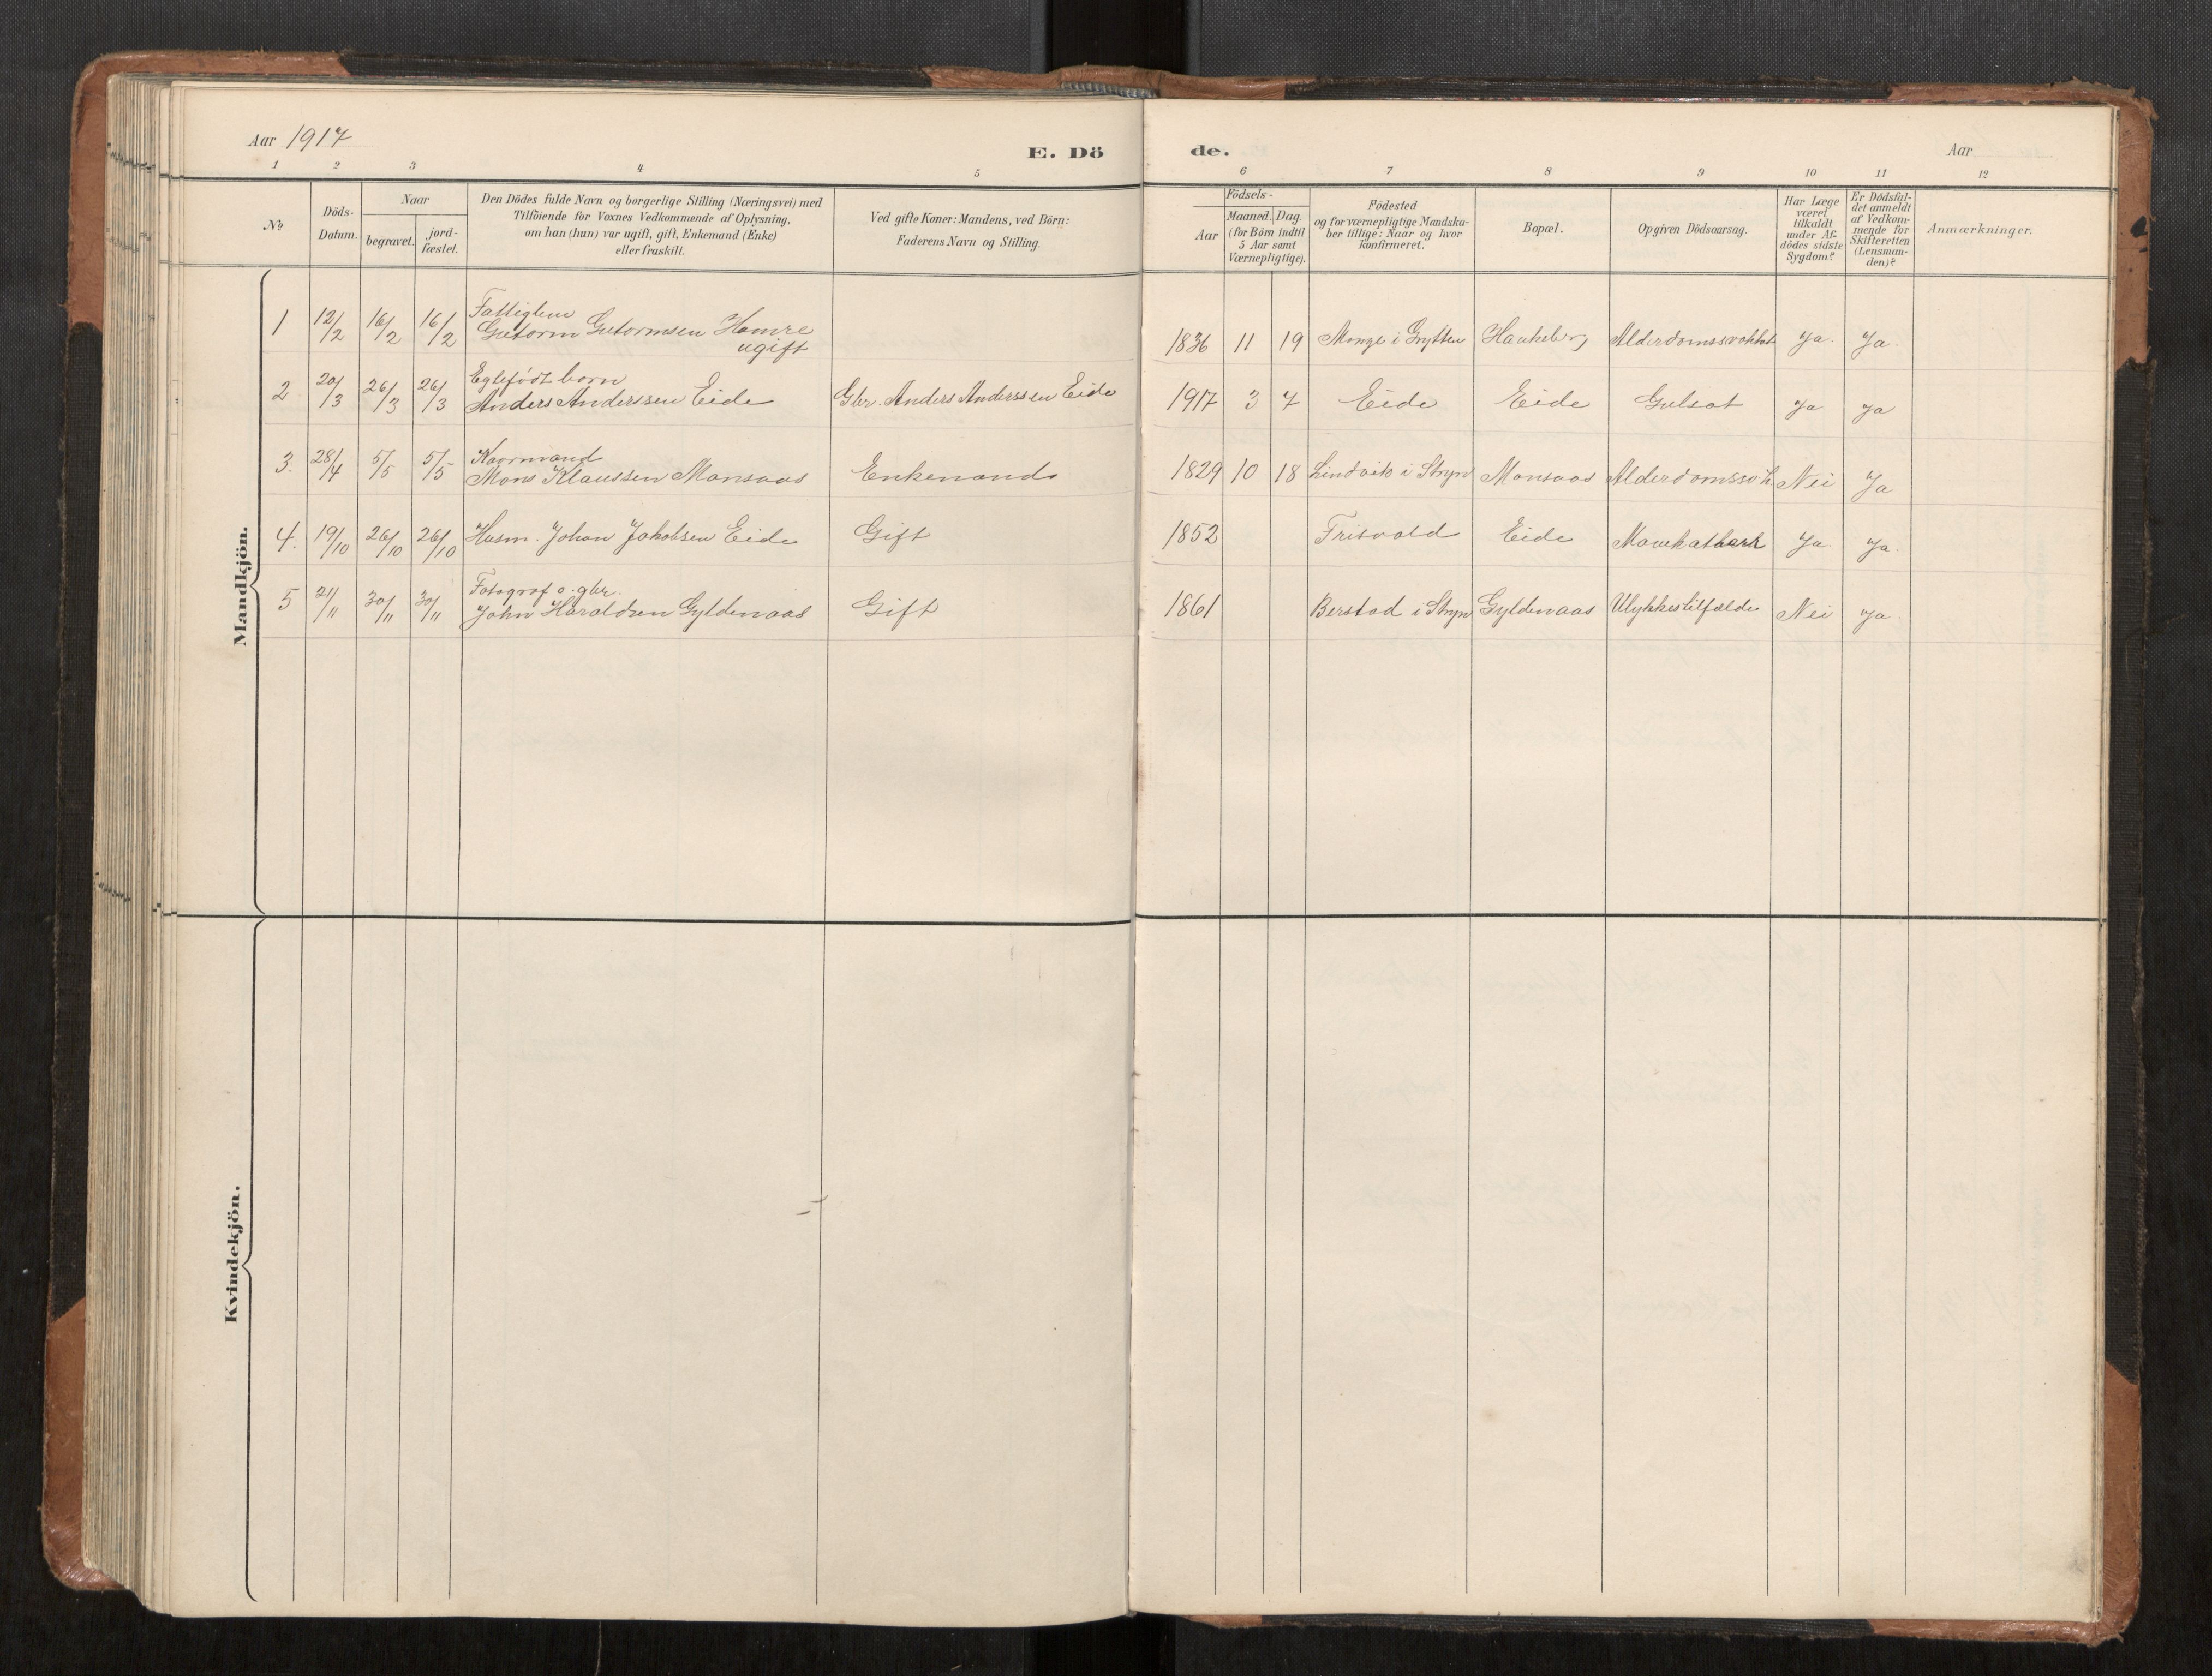 Aar 1917
E. Dö
de.
Aar
1 2 3 4 5 6 7 8 9 10 11 12
No
Döds-
Datum.
Naar
begravet.
jord-
fæstet.
Den Dödes fulde Navn og borgerlige Stilling (Næringsvei) med
Tilföiende for Voxnes Vedkommende af Oplysning,
om han (hun) var ugift, gift, Enkemand (Enke)
eller fraskilt.
Ved gifte Koner: Mandens, ved Börn:
Faderens Navn og Stilling.
Födsels-
Aar
Maaned. Dag.
(for Börn indtil
5 Aar samt
Værnepligtige).
Födested
og for værnepligtige Mandska-
ber tillige: Naar og hvor
konfirmeret.
Bopæl.
Opgiven Dödsaarsag.
Har Læge
været
tilkaldt
under Af-
dödes sidste
Sygdom?
Er Dödsfal-
det anmeldt
af Vedkom-
mende for
Skifteretten
(Lensman-
den)?
Anmærkninger.
Mandkjön.
Fattiglem
1 12/2 16/2 16/2 Gutorm Gutormsen Hamre 1836 11 19 Monge i Grytten Haukeberg Ja. Ja.
ugift
Egtefödt barn
2 20/3 26/3 26/3 Anders Anderssen Eide Gbr. Anders Anderssen Eide 1917 3 7 Eide Eide Gulsot Ja Ja
Kaarmand
3. 28/4 5/5 5/5 Mons Klaussen Monsaas Enkemand 1829 10 18 Lindvik i Stryn Monsaas Nei Ja
4. 19/10 26/10 26/10 Husm. Johan Jakobsen Eide Gift 1852 Frisvold Eide Ja. Ja.
Fotograf o. gbr.
5 21/11 30/11 30/11 John Haraldsen Gyldenaas Gift 1861 Berstad i Stryn Gyldenaas Ulykkestilfælde Nei Ja.
Kvindekjön.